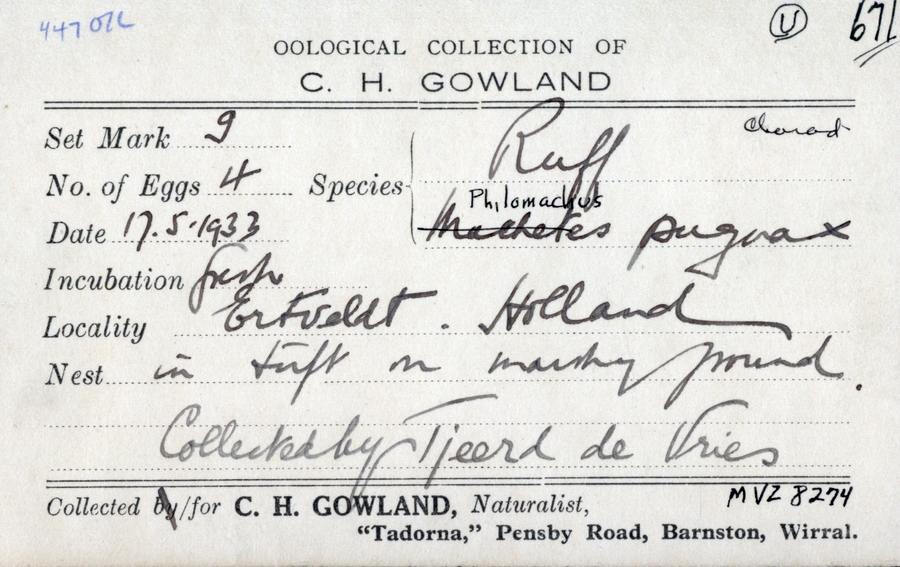 447 OLL U 671
OOLOGICAL COLLECTION OF
C. H. GOWLAND
Set Mark 9 Charad
No. of Eggs 4 Species Ruff
Philomachus
Date 17.5.1933 Machetes pugnax
Incubation fresh
Locality Ertveldt. Holland
Nest in tuft on marshy ground.
Collected by Tjeerd de Vries
Collected by/for C. H. GOWLAND, Naturalist, MVZ 8274
"Tadorna," Pensby Road, Barnston, Wirral.